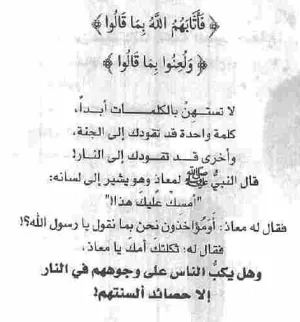 ﴿ فَأَثَابَهُمُ اللَّهُ بِمَا قَالُوا ﴾
﴿ وَلُعِنُوا بِمَا قَالُوا ﴾
لا تستهن بالكلمات أبداً،
كلمة واحدة قد تقودك إلى الجنة،
وأخرى قد تقودك إلى النار!
قال النبيُّ ﷺ لمعاذ وهو يشير إلى لسانه:
"أمسِكْ عليكَ هذا!"
فقال له معاذ: أومُؤاخذون نحن بما نقول يا رسول الله؟!
فقال له: ثكلتكَ أمكَ يا معاذ،
وهل يكبُّ الناس على وجوههم في النار
إلا حصائد ألسنتهم!